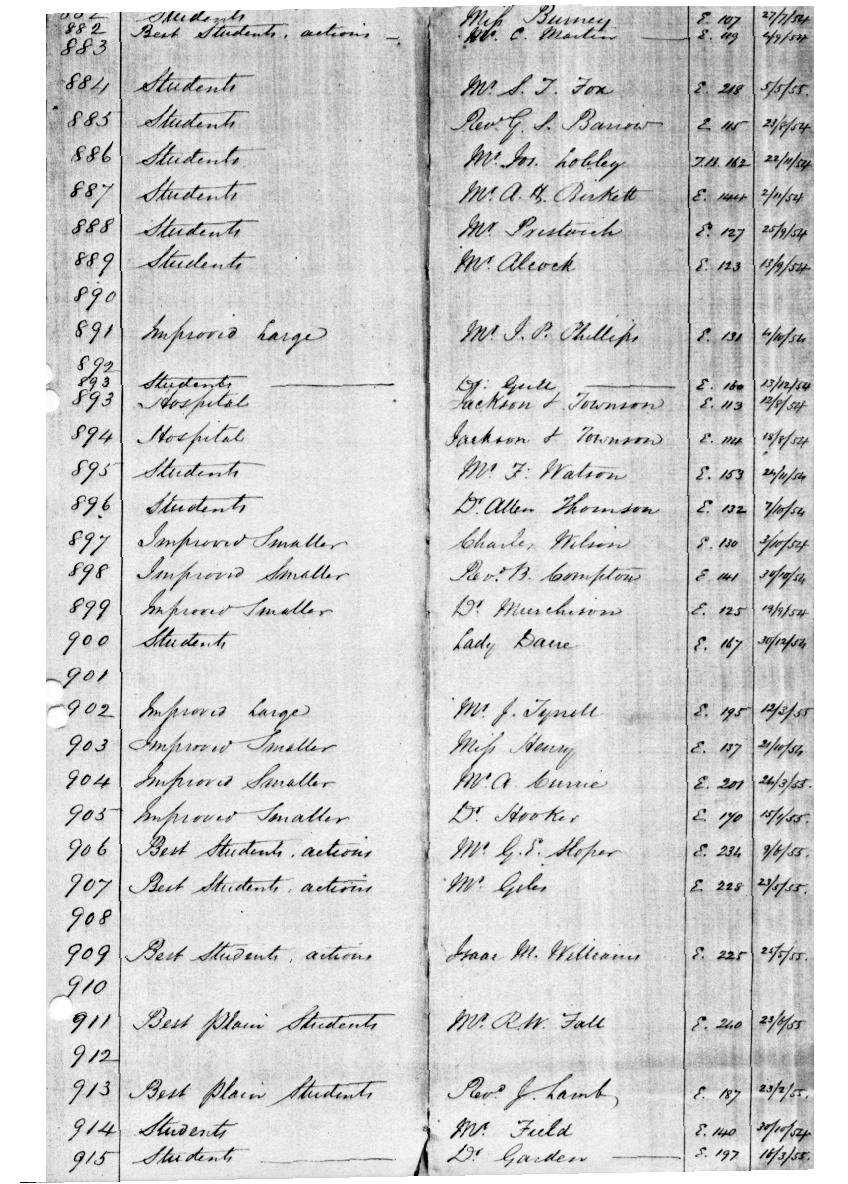 882 Students Miss Burney E. 107 27/7/54
882 Best Students, actions — Mr. C. Martin — E. 119 4/9/54
883
884 Students Mr. S. T. Fox E. 218 5/5/55.
885 Students Revd. G. S. Barrow E. 115 23/8/54
886 Students Mr. Jos. Lobley 162 22/11/54
887 Students Mr. A. H. Birkett E. 144 2/11/54
888 Students Mr. Prestwich E. 127 25/9/54
889 Students Mr. Alcock E. 123 13/9/54
890
891 Improved Large Mr. J. P. Phillips E. 131 4/10/54
892
893 Students — Dr. Gull — E. 160 13/12/54
893 Hospital Jackson & Townson E. 113 12/8/54
894 Hospital Jackson & Townson E. 114 18/8/54
895 Students Mr. F. Watson E. 153 24/11/54
896 Students Dr. Allen Thomson E. 132 7/10/54
897 Improved Smaller Charles Wilson E. 130 2/10/54
898 Improved Smaller Revd. B. Compton E. 141 30/10/54
899 Improved Smaller Dr. Murchison E. 125 19/9/54
900 Students Lady Dacre E. 167 30/12/54
901
902 Improved Large Mr. J. Tyrrell E. 195 12/3/55
903 Improved Smaller Miss Henry E. 137 21/10/54
904 Improved Smaller Mr. A. Currie E. 201 26/3/55.
905 Improved Smaller Dr. Hooker E. 170 15/1/55.
906 Best Students, actions Mr. G. E. Sloper E. 234 9/6/55.
907 Best Students, actions Mr. Giles E. 228 23/5/55.
908
909 Best Students, actions Isaac M. Williams E. 225 25/5/55.
910
911 Best plain Students Mr. R. W. Fall E. 240 23/6/55
912
913 Best plain Students Revd. J. Lamb, E. 187 23/2/55.
914 Students Mr. Field E. 140 30/10/54
915 Students — Dr. Garden — E. 197 16/3/55.